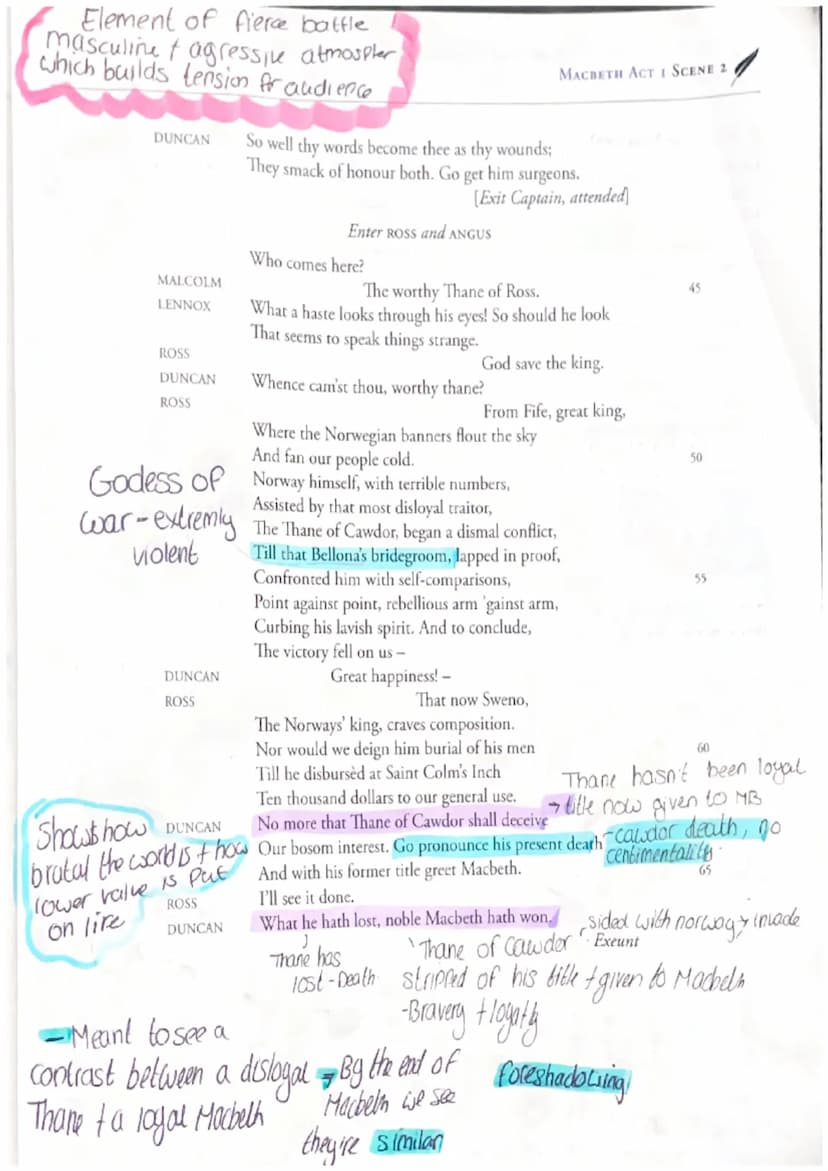 Element of fierce battle
masculine + agressive atmospher
which builds tension for audience
MACBETH ACT 1 SCENE 2
DUNCAN So well thy words become thee as thy wounds;
They smack of honour both. Go get him surgeons.
[Exit Captain, attended]
Enter ROSS and ANGUS
Who comes here?
MALCOLM The worthy Thane of Ross. 45
LENNOX What a haste looks through his eyes! So should he look
That seems to speak things strange.
ROSS God save the king.
DUNCAN Whence cam'st thou, worthy thane?
ROSS From Fife, great king,
Where the Norwegian banners flout the sky
And fan our people cold. 50
Norway himself, with terrible numbers,
Assisted by that most disloyal traitor,
The Thane of Cawdor, began a dismal conflict,
Till that Bellona's bridegroom, lapped in proof,
Confronted him with self-comparisons, 55
Point against point, rebellious arm 'gainst arm,
Curbing his lavish spirit. And to conclude,
The victory fell on us –
Godess of
war - extremly
violent
DUNCAN Great happiness! –
ROSS That now Sweno,
The Norways' king, craves composition.
Nor would we deign him burial of his men 60
Till he disbursèd at Saint Colm's Inch
Ten thousand dollars to our general use.
Thane hasn't been loyal
→ title now given to MB
DUNCAN No more that Thane of Cawdor shall deceive
Our bosom interest. Go pronounce his present death
- cawdor death, no
centimentality.
And with his former title greet Macbeth. 65
ROSS I'll see it done.
DUNCAN What he hath lost, noble Macbeth hath won.
Exeunt
Shows how
brutal the world is + how
lower value is put
on life
sided with norway + invade
Thane has
lost - Death
Thane of Cawdor
stripped of his title + given to Macbeth
- Bravery + loyalty
- Meant to see a
contrast between a disloyal
Thane + a loyal Macbeth
→ By the end of
Macbeth we see
they're similar
foreshadowing